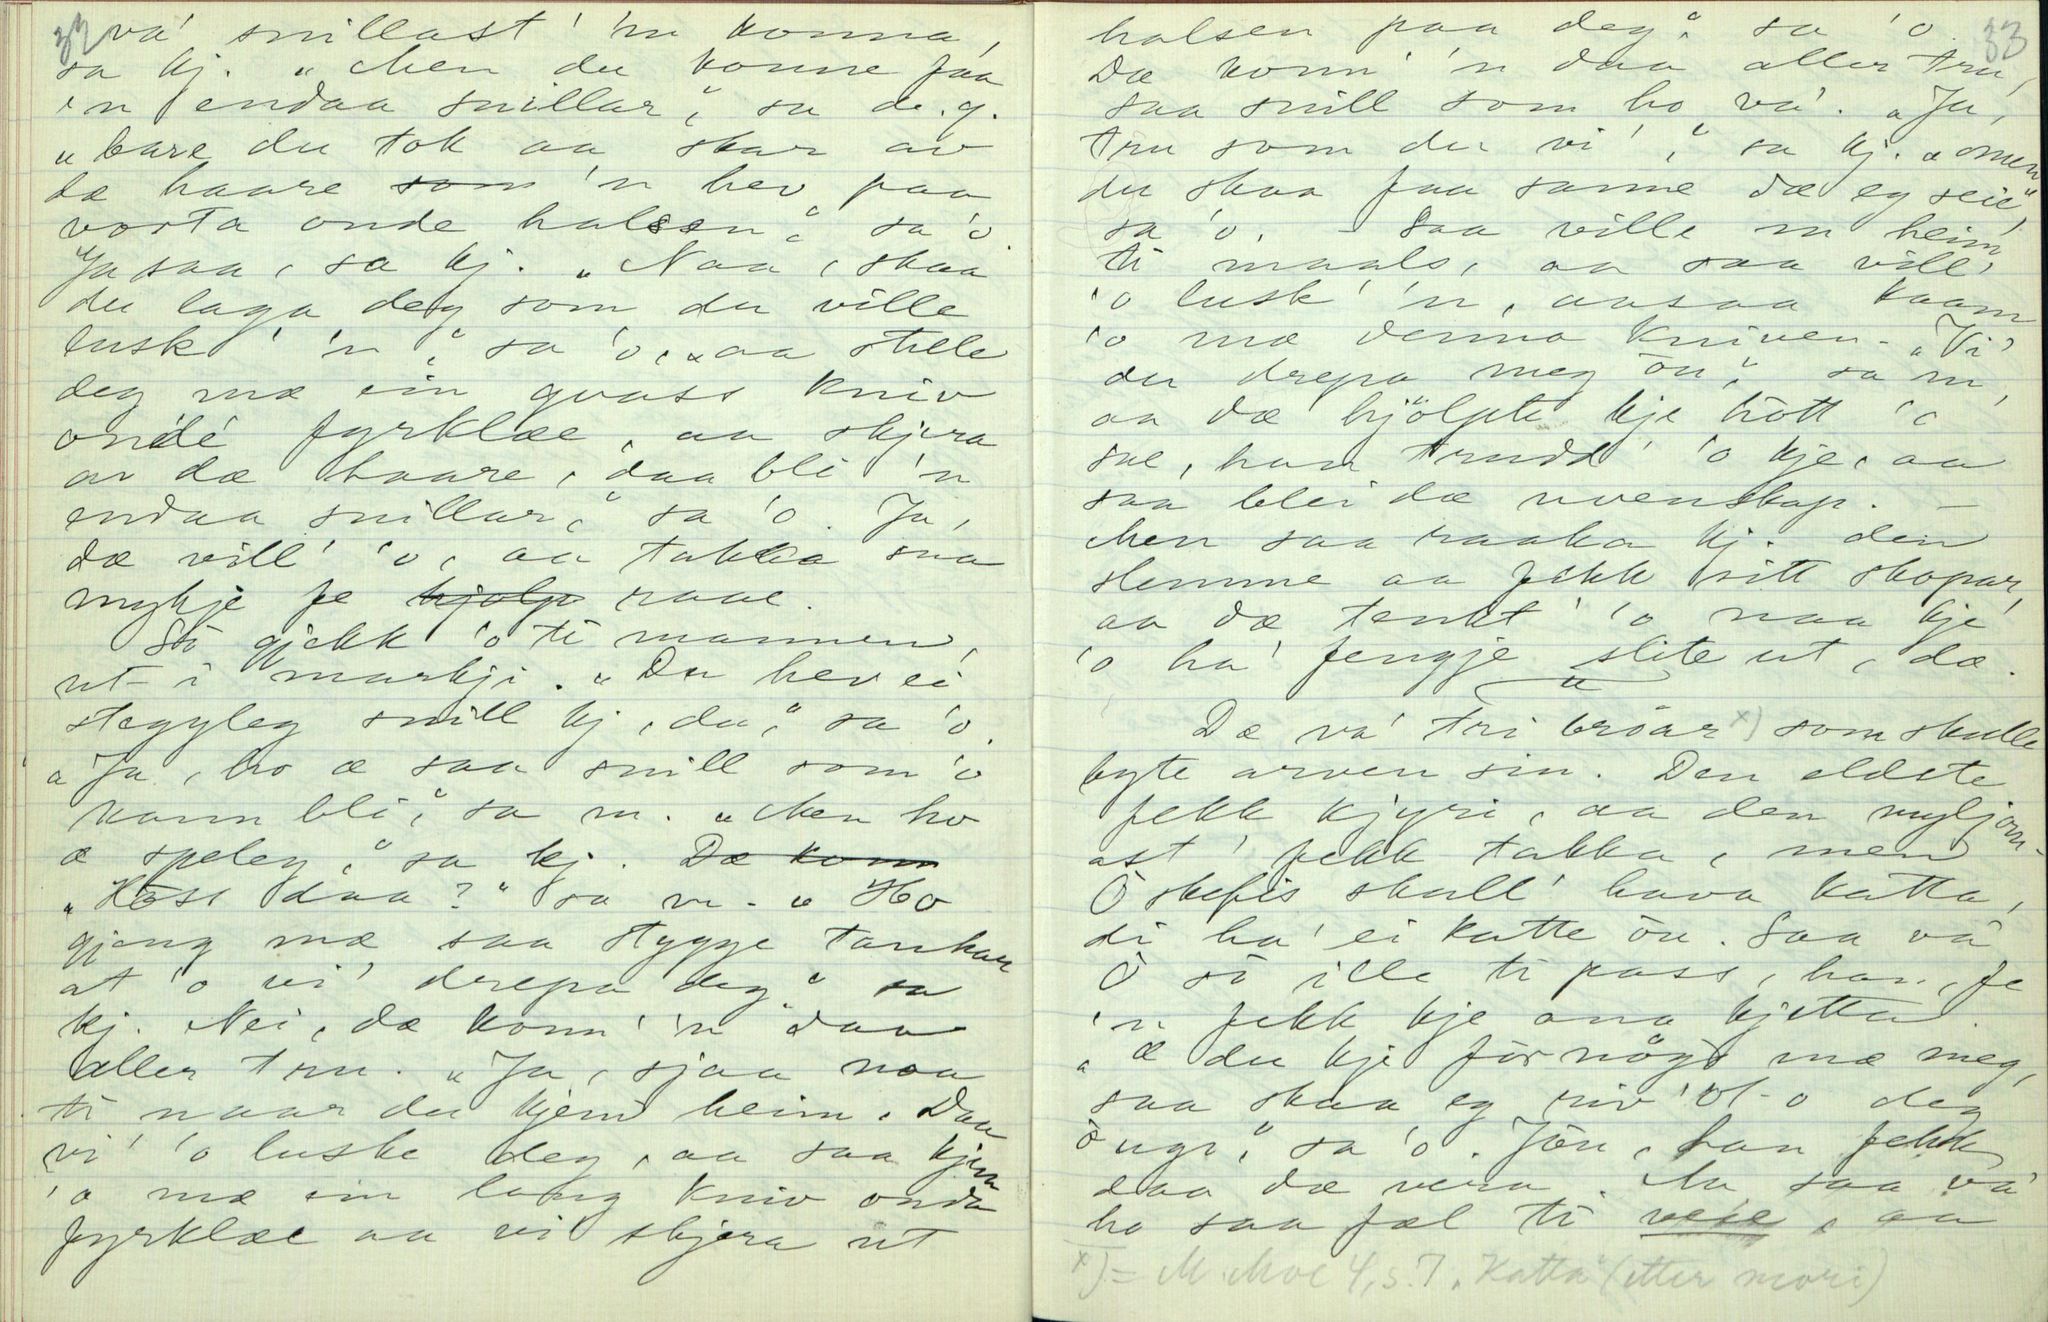 32
va' snillast' 'n konna,
sa kj. „Men du konne faa
'n endaa snillar," sa d. g.
„bare du tok aa skar av
dæ haare som 'n hev paa
vorta onde halsen," sa 'o.
Ja saa, sa kj. „Naa, skaa
du laga deg som du ville
lusk' 'n," sa 'o, „aa stele
deg mæ ein qvass kniv
onde fyrklæe, aa skjera
av dæ haare, daa bli 'n
endaa snillar," sa 'o. Ja,
dæ vill' 'o, aa takka saa
mykje fe hjølp raae.
Så gjekk 'o ti mannen,
ut i markji. „Du hev ei
steggyleg snill kj, du," sa 'o.
„Ja, ho æ saa snill som 'o
kann bli," sa m. „Men ho
æ speleg," sa kj. Dæ konn
„Høss daa?" sa m. „Ho
gjeng mæ saa stygge tankar
at 'o vi' drepa deg," sa
kj. Nei, dæ konn' 'n daa
aller tru. „Ja, sjaa naa
ti naar du kjem heim. Daa
vi' 'o luske deg, aa saa kjem
'o mæ ein lang kniv onde
fyrklæe aa vi skjera ut
33
halsen paa deg," sa 'o.
Dæ konn' 'n daa aller tru,
saa snill som ho va'. „Ja,
tru som du vi'," sa kj. „men
du skaa faa sanne dæ eg seie,"
sa 'o. – Saa ville m heim
ti maals, aa saa vill'
'o lusk' 'n, aasaa kaam
'o mæ denna kniven. „Vi'
du drepa meg òu," sa m,
aa dæ hjölpte kje hòtt 'o
sae, han trudd' 'o kje, aa
saa blei dæ uvenskap. –
Men saa raaka kj. den
slemme aa fekk sitt skopar,
aa dæ tenkt' 'o naa kje
'o ha' fengje slite ut, dæ.
Dæ va' tri brôar x) som skulle
byte arven sin. Den eldste
fekk kjyri, aa den myljom-
ast' fekk takka, men
Oskefis skull' hava katta,
di ha' ei katte òu. Saa va
O så ille ti pass, han, fe
'n fekk kje ona kjetta.
„Æ du kje förnøgd mæ meg,
saa skaa eg riv' ut-o deg
öugo," sa 'o. Jòu, han fekk
daa dæ vera. Aa saa va'
ho saa fæl ti veie, aa
x) = M. Moe 4, s. 7. „Katta" (etter mori)